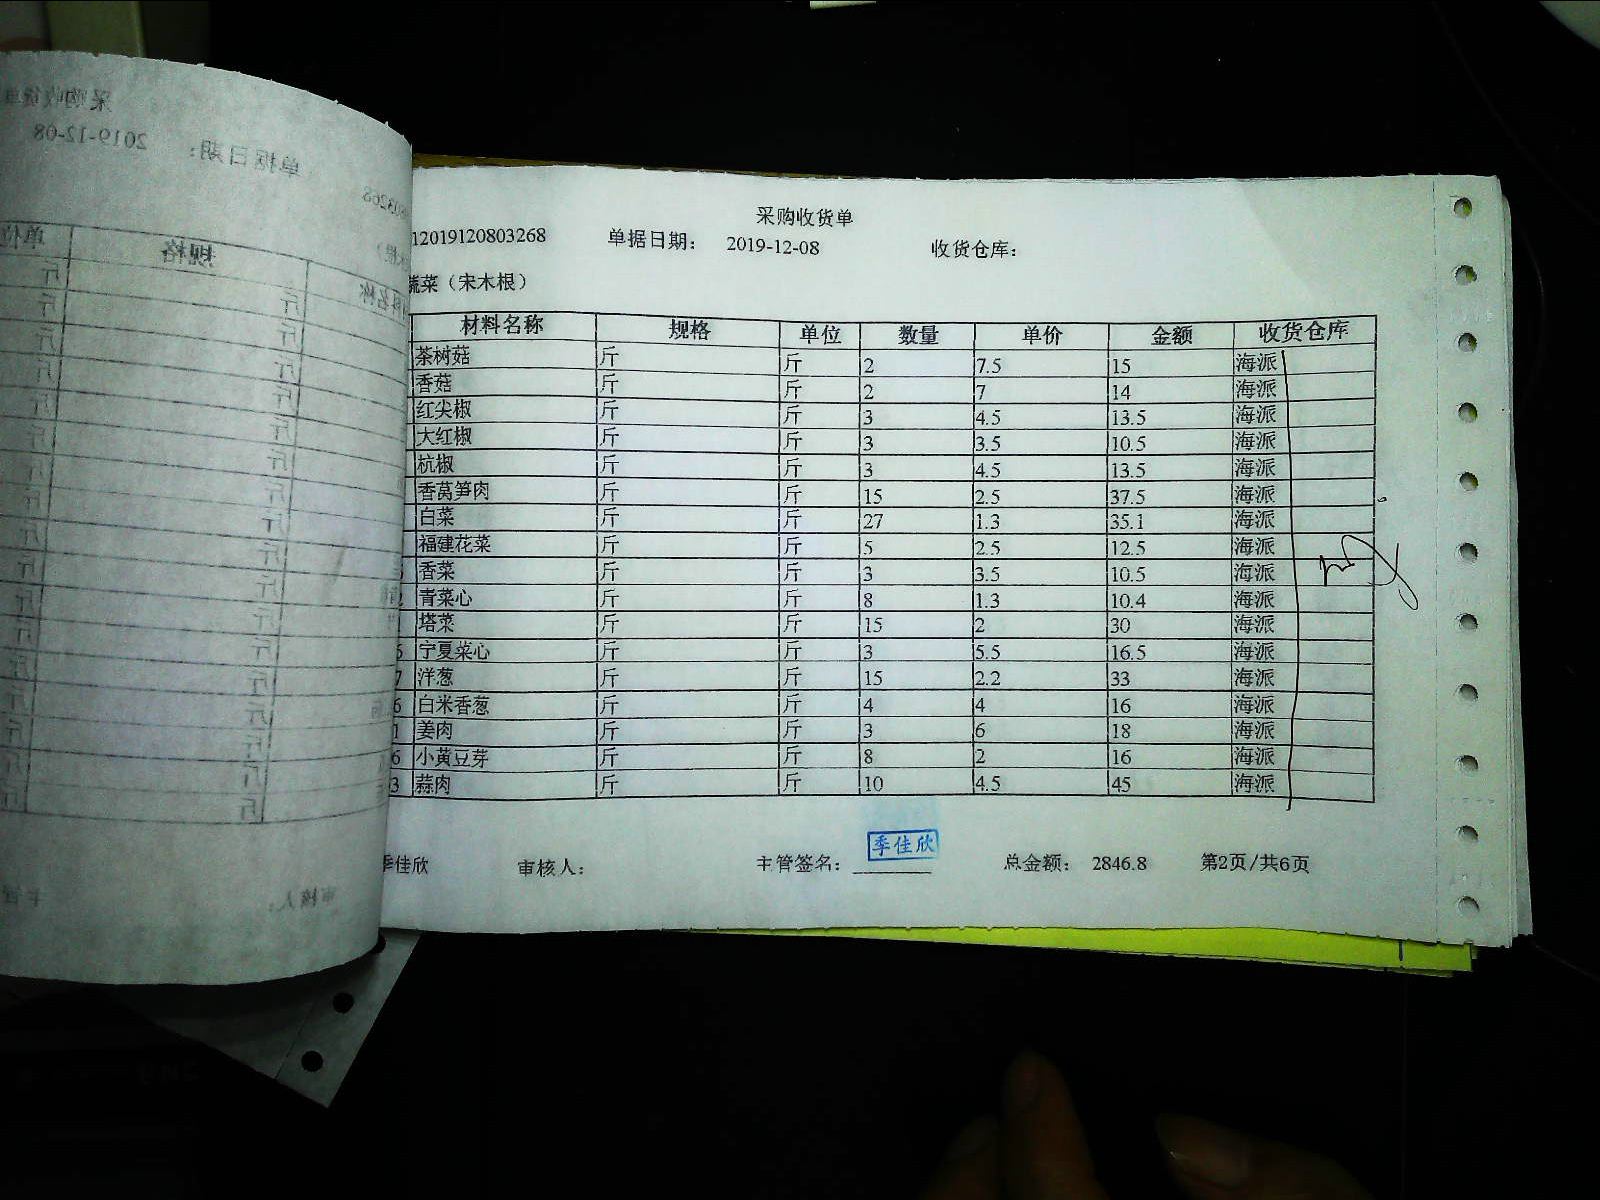 采购收货单
12019120803268 单据日期: 2019-12-08 收货仓库:
蔬菜（宋木根）
材料名称 规格 单位 数量 单价 金额 收货仓库
茶树菇 斤 斤 2 7.5 15 海派
香菇 斤 斤 2 7 14 海派
红尖椒 斤 斤 3 4.5 13.5 海派
大红椒 斤 斤 3 3.5 10.5 海派
杭椒 斤 斤 3 4.5 13.5 海派
香莴笋肉 斤 斤 15 2.5 37.5 海派
白菜 斤 斤 27 1.3 35.1 海派
福建花菜 斤 斤 5 2.5 12.5 海派
香菜 斤 斤 3 3.5 10.5 海派
青菜心 斤 斤 8 1.3 10.4 海派
塔菜 斤 斤 15 2 30 海派
6 宁夏菜心 斤 斤 3 5.5 16.5 海派
7 洋葱 斤 斤 15 2.2 33 海派
6 白米香葱 斤 斤 4 4 16 海派
1 姜肉 斤 斤 3 6 18 海派
6 小黄豆芽 斤 斤 8 2 16 海派
3 蒜肉 斤 斤 10 4.5 45 海派
季佳欣 审核人: 主管签名: 季佳欣 总金额: 2846.8 第2页/共6页